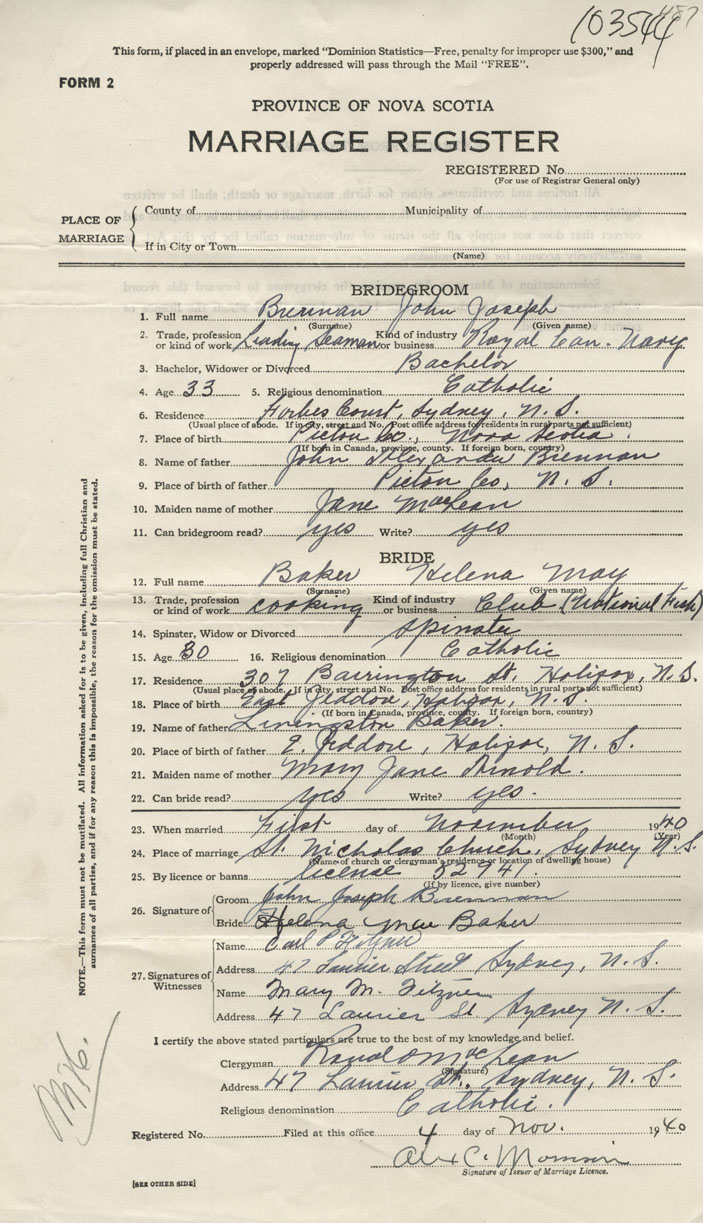 103544
487
This form, if placed in an envelope, marked "Dominion Statistics—Free, penalty for improper use $300," and
properly addressed will pass through the Mail "FREE".
FORM 2
PROVINCE OF NOVA SCOTIA
MARRIAGE REGISTER
REGISTERED No.
(For use of Registrar General only)
PLACE OF MARRIAGE
County of Municipality of
If in City or Town
(Name)
BRIDEGROOM
1. Full name Brennan John Joseph
(Surname) (Given name)
2. Trade, profession or kind of work Leading Seaman Kind of industry or business Royal Can. Navy
3. Bachelor, Widower or Divorced Bachelor
4. Age 33 5. Religious denomination Catholic
6. Residence Forbes Court, Sydney, N. S.
(Usual place of abode. If in city, street and No. Post office address for residents in rural parts not sufficient)
7. Place of birth Pictou Co., Nova Scotia.
(If born in Canada, province, county. If foreign born, country)
8. Name of father John Alexander Brennan
9. Place of birth of father Pictou Co, N. S.
10. Maiden name of mother Jane MacLean
11. Can bridegroom read? yes Write? yes
BRIDE
12. Full name Baker Helena May
(Surname) (Given name)
13. Trade, profession or kind of work cooking Kind of industry or business Club (National Fish)
14. Spinster, Widow or Divorced Spinster
15. Age 30 16. Religious denomination Catholic
17. Residence 307 Barrington St. Halifax, N.S.
(Usual place of abode. If in city, street and No. Post office address for residents in rural parts not sufficient)
18. Place of birth East Jeddore, Halifax, N. S.
(If born in Canada, province, county. If foreign born, country)
19. Name of father Livingston Baker
20. Place of birth of father E. Jeddore, Halifax, N. S.
21. Maiden name of mother Mary Jane Arnold.
22. Can bride read? yes Write? yes.
23. When married First day of November 1940
(Month) (Year)
24. Place of marriage St. Nicholas Church, Sydney N.S.
(Name of church or clergyman's residence or location of dwelling house)
25. By licence or banns license 52941.
(If by licence, give number)
26. Signature of
Groom John Joseph Brennan
Bride Helena Mae Baker
27. Signatures of Witnesses
Name Carl P
Address 47 Laurier Street Sydney, N. S.
Name Mary M. Fitzner
Address 47 Laurier St Sydney N. S.
I certify the above stated particulars are true to the best of my knowledge and belief.
Clergyman MacLean
(Signature)
Address 47 Laurier St. Sydney, N. S.
Religious denomination Catholic.
Registered No. Filed at this office 4 day of Nov. 1940
Alex C.
Signature of Issuer of Marriage Licence.
[SEE OTHER SIDE]
NOTE.—This form must not be mutilated. All information asked for is to be given, including full Christian and
surnames of all parties, and if for any reason this is impossible, the reason for the omission must be stated.